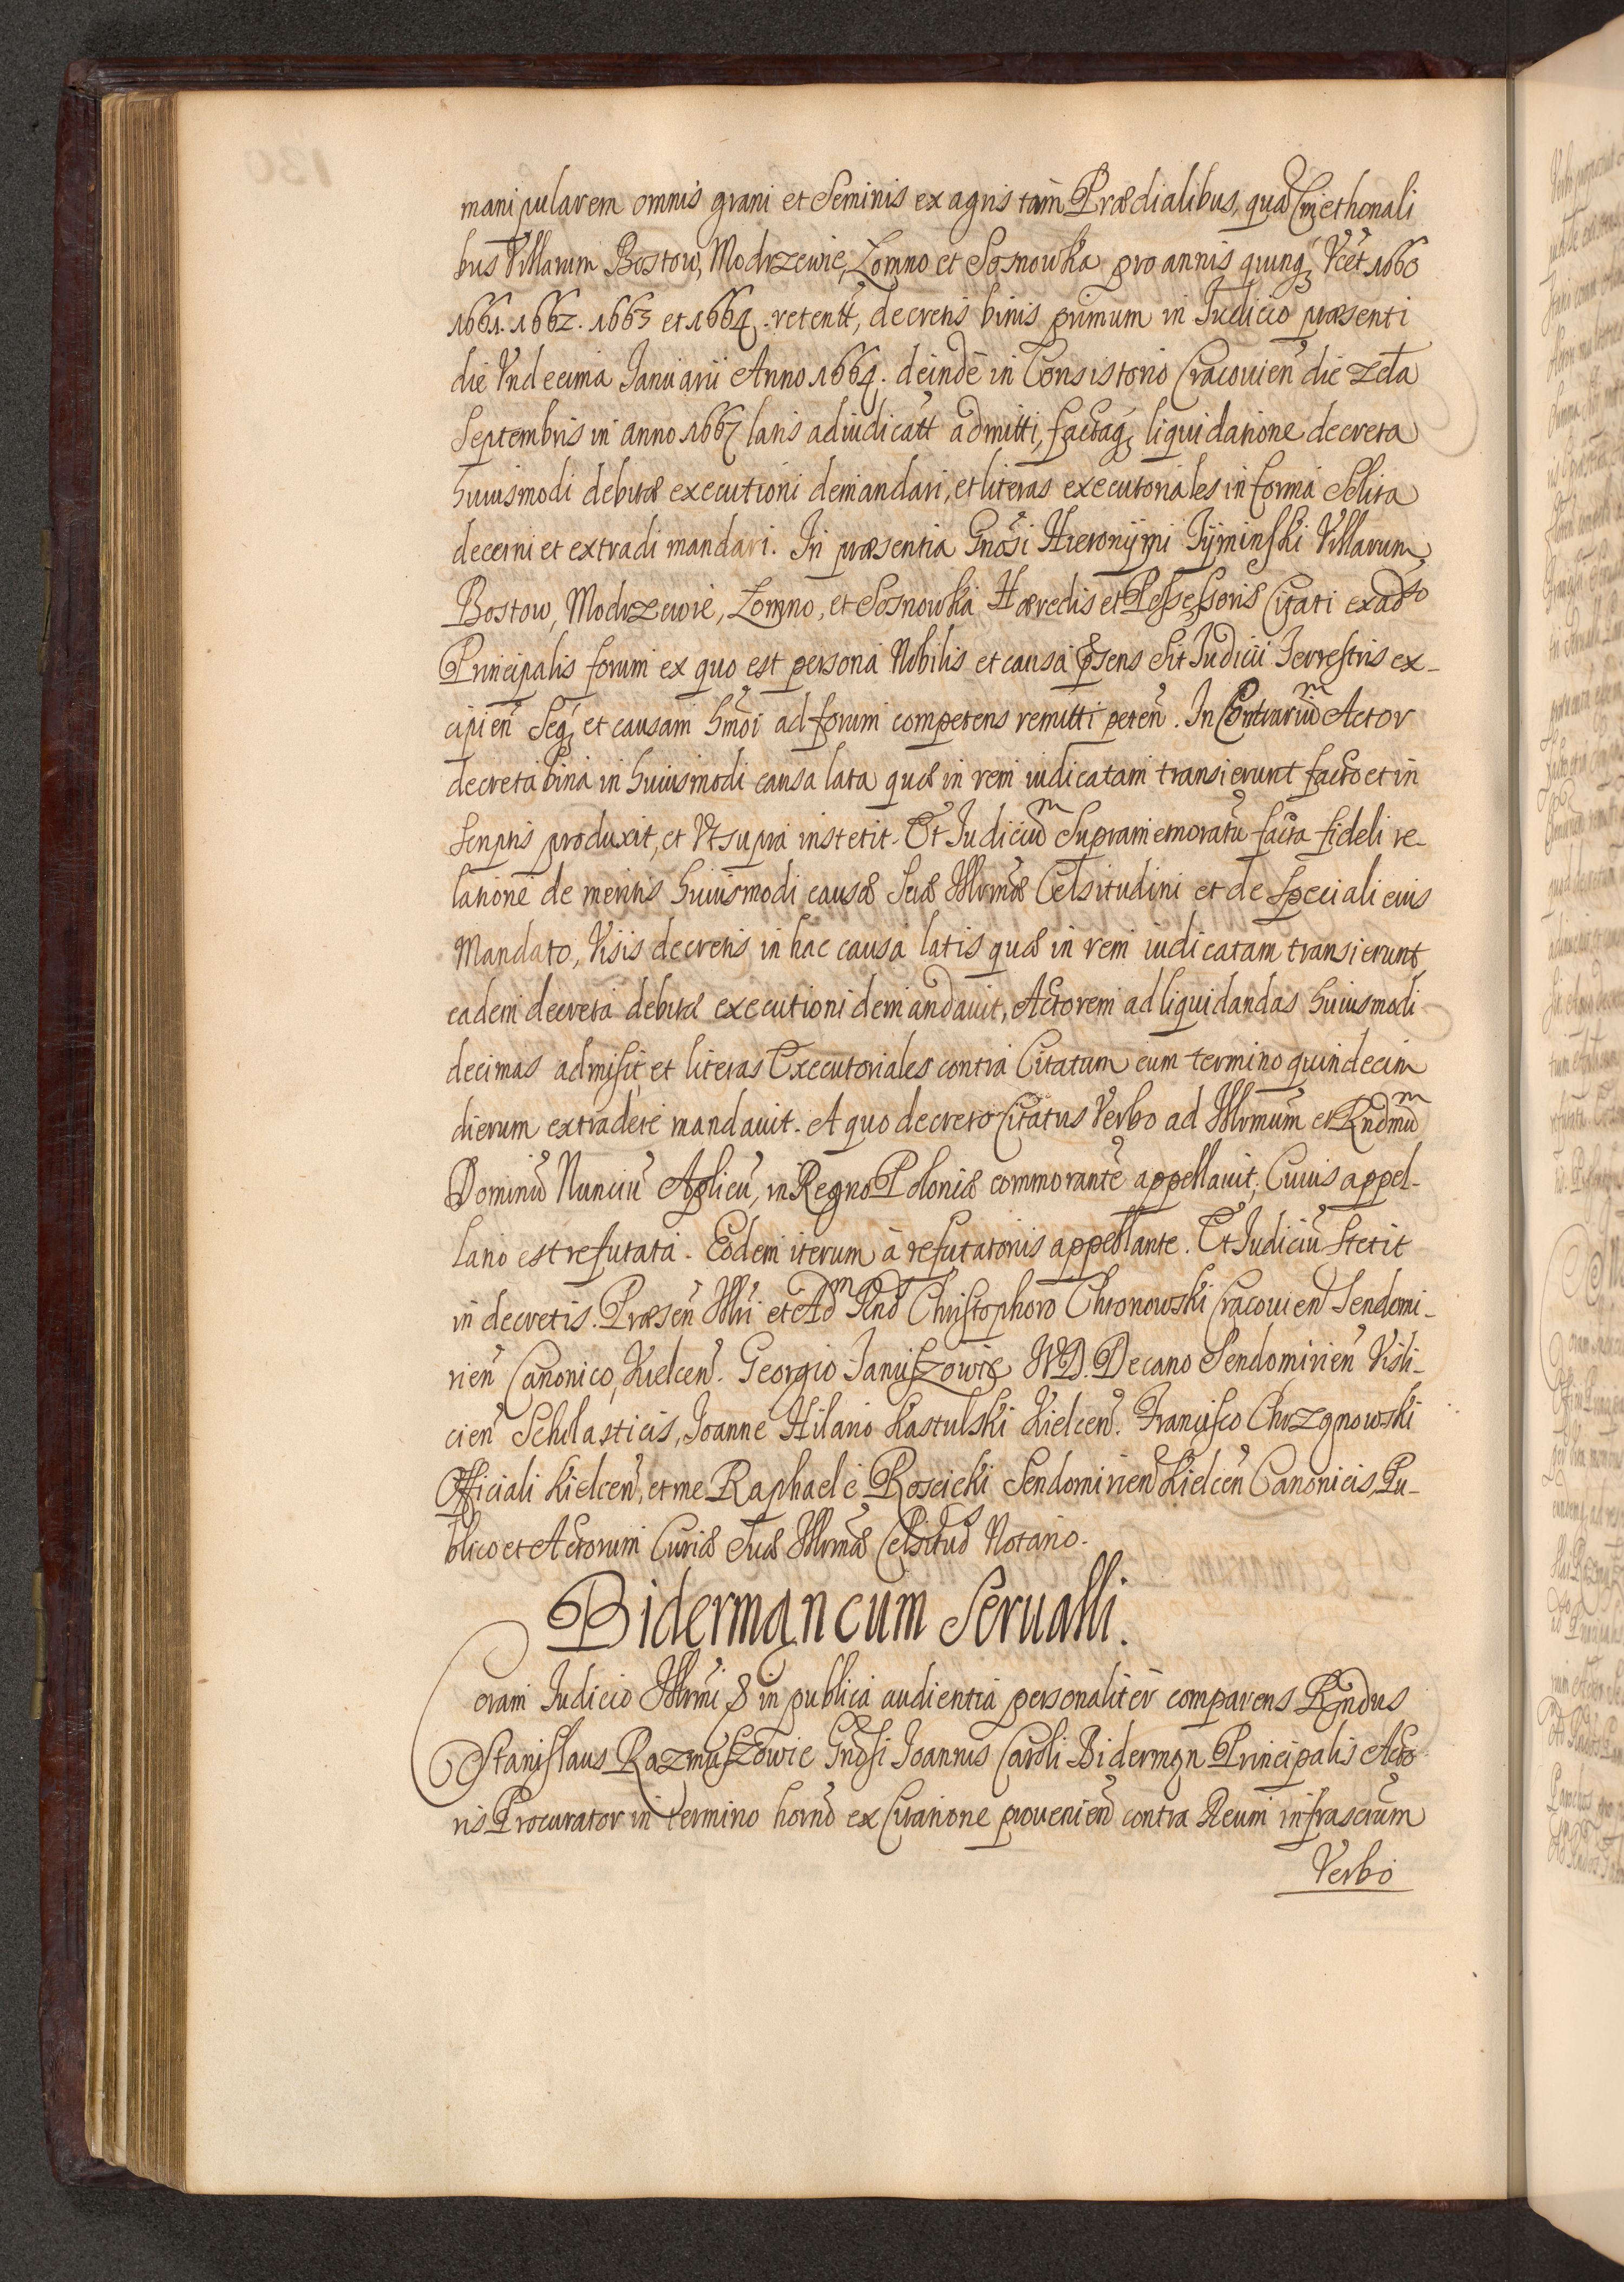 manipularem omnis grani et Seminis ex agris tam Prædialibus, quã Cmethonali
bus Villarum Bostow, Modrzewie, Zomno et Sosnowka pro annis quinq; Vcēt 1660
1661. 1662. 1663 et 1664. retentt, decretis binis primum in Iudicio præsenti
die Vndecima Ianuarii Anno 1664. deinde in Consistorio Cracouien die 2da
Septembris in anno 1667 latis adiudicatt admitti, factaq; liquidatione decreta
huiusmodi debitæ executioni demandari, et literas executoriales in forma Solita
decerni et extradi mandari. In præsentia Gnosi Hieronymi Tyminski Villarum
Bostow, Modrzewie, Zomno, et Sosnowka Hæredis et Possessoris Citati ex adso
Principalis forum ex quo est persona Nobilis et causa psens sit Iudicii Terrestris ex-
cipien Seq; et causam hmoi ad forum competens remitti peten. In Contrariũm Actor
decreta bina in huiusmodi causa lata quæ in rem iudicatam transierunt facto et in
scriptis produxit, et Vt supra institit. Et Iudiciũm Supramemoratũ facta fideli re-
latione de meritis huiusmodi causæ Suæ Illrmæ Celsitudini et de speciali eius
Mandato, Visis decretis in hac causa latis quæ in rem iudicatam transierunt,
eadem decreta debitæ executioni demandauit, Actorem ad liquidandas huiusmodi
decimas admisit, et literas Executoriales contra Citatum cum termino quindecim
dierum extradere mandauit. A quo decreto Citatus Verbo ad Illrmum et Rndmũm
Dominũ Nunciũ Aplicũ, in Regno Poloniæ commorantẽ appellauit, Cuius appel-
latio est refutata. Eodem iterum a refutatoriis appellante. Et Iudiciũ stetit
in decretis. Præsen Illri et Adm Rnd Christophoro Chronowski Cracouien Sendomi-
rien Canonico, Kielcen. Georgio Januszowic IVD. Decano Sendomirien Visli-
cien Scholasticis, Ioanne Hilario Kastulski Kielcen. Francisco Chrzanowski
Officiali Kielcen, et me Raphaele Roscicki Sendomirien Kielcen Canonicis, Pu-
blico et Actorum Curiæ Suæ Illrmæ Celsitud Notario.
Bidermancum Serualli.
Coram Iudicio Illrmi & in publica audientia personaliter comparens Rndus
Stanislaus Razmuszowic Gnosi Ioannis Caroli Biderman Principalis Acto
ris Procurator in termino horno ex Citatione prouenien contra Reum infrascrum
Verbo